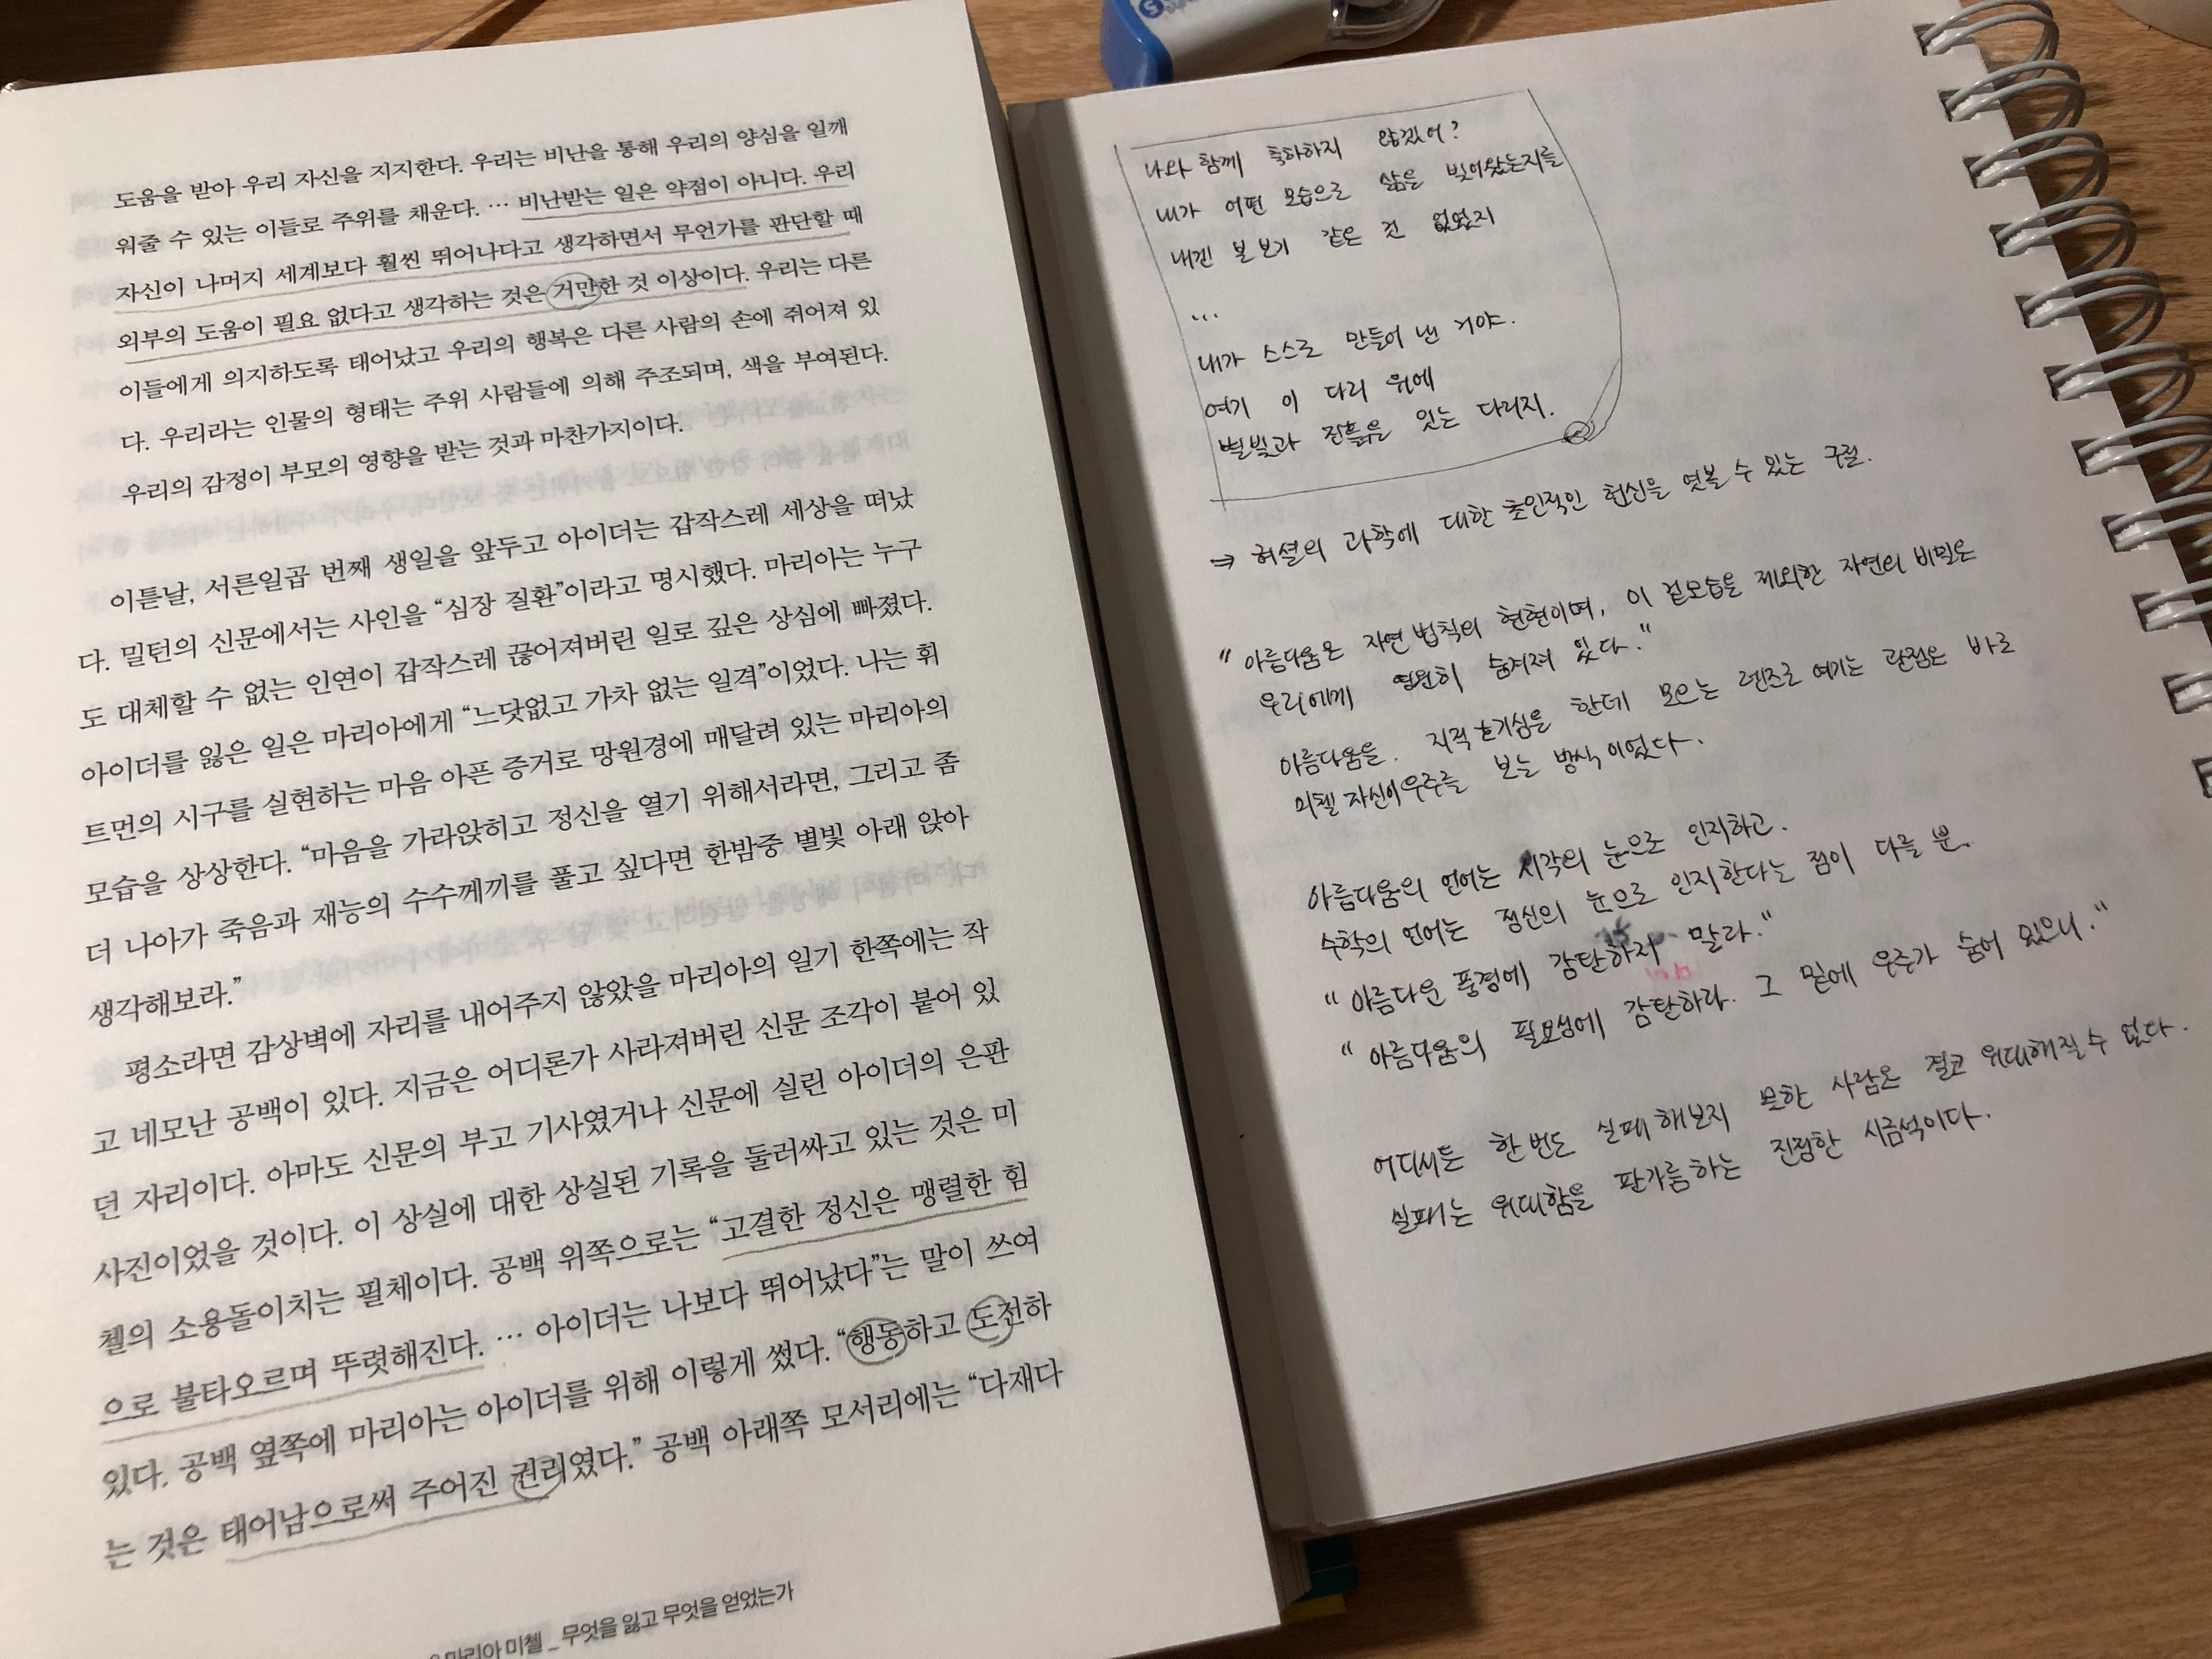 도움을 받아 우리 자신을 지지한다. 우리는 비난을 통해 우리의 양심을 일깨
워줄 수 있는 이들로 주위를 채운다. … 비난받는 일은 약점이 아니다. 우리
자신이 나머지 세계보다 훨씬 뛰어나다고 생각하면서 무언가를 판단할 때
외부의 도움이 필요 없다고 생각하는 것은 거만한 것 이상이다. 우리는 다른
이들에게 의지하도록 태어났고 우리의 행복은 다른 사람의 손에 쥐어져 있
다. 우리라는 인물의 형태는 주위 사람들에 의해 주조되며, 색을 부여된다.
우리의 감정이 부모의 영향을 받는 것과 마찬가지이다.
이튿날, 서른일곱 번째 생일을 앞두고 아이더는 갑작스레 세상을 떠났
다. 밀턴의 신문에서는 사인을 “심장 질환”이라고 명시했다. 마리아는 누구
도 대체할 수 없는 인연이 갑작스레 끊어져버린 일로 깊은 상심에 빠졌다.
아이더를 잃은 일은 마리아에게 “느닷없고 가차 없는 일격”이었다. 나는 휘
트먼의 시구를 실현하는 마음 아픈 증거로 망원경에 매달려 있는 마리아의
모습을 상상한다. “마음을 가라앉히고 정신을 열기 위해서라면, 그리고 좀
더 나아가 죽음과 재능의 수수께끼를 풀고 싶다면 한밤중 별빛 아래 앉아
생각해보라.”
평소라면 감상벽에 자리를 내어주지 않았을 마리아의 일기 한쪽에는 작
고 네모난 공백이 있다. 지금은 어디론가 사라져버린 신문 조각이 붙어 있
던 자리이다. 아마도 신문의 부고 기사였거나 신문에 실린 아이더의 은판
사진이었을 것이다. 이 상실에 대한 상실된 기록을 둘러싸고 있는 것은 미
첼의 소용돌이치는 필체이다. 공백 위쪽으로는 “고결한 정신은 맹렬한 힘
으로 불타오르며 뚜렷해진다. … 아이더는 나보다 뛰어났다”는 말이 쓰여
있다. 공백 옆쪽에 마리아는 아이더를 위해 이렇게 썼다. “행동하고 도전하
는 것은 태어남으로써 주어진 권리였다.” 공백 아래쪽 모서리에는 “다재다
마리아 미첼 _ 무엇을 잃고 무엇을 얻었는가
나와 함께 축하하지 않겠어?
내가 어떤 모습으로 삶을 빚어왔는지를
내겐 본보기 같은 건 없었지
...
내가 스스로 만들어 낸 거야.
여기 이 다리 위에
별빛과 진흙을 잇는 다리지.
⇒ 허셜의 과학에 대한 초인적인 헌신을 엿볼 수 있는 구절.
“아름다움은 자연 법칙의 현현이며, 이 겉모습을 제외한 자연의 비밀은
우리에게 영원히 숨겨져 있다.”
아름다움을. 지적 호기심을 한데 모으는 렌즈로 여기는 관점은 바로
미첼 자신이 우주를 보는 방식이었다.
아름다움의 언어는 시각의 눈으로 인지하고.
수학의 언어는 정신의 눈으로 인지한다는 점이 다를 뿐.
“아름다운 풍경에 감탄하지 말라.”
“아름다움의 필요성에 감탄하라. 그 밑에 우주가 숨어 있으니.”
어디서든 한 번도 실패해보지 못한 사람은 결코 위대해질 수 없다.
실패는 위대함을 판가름하는 진정한 시금석이다.